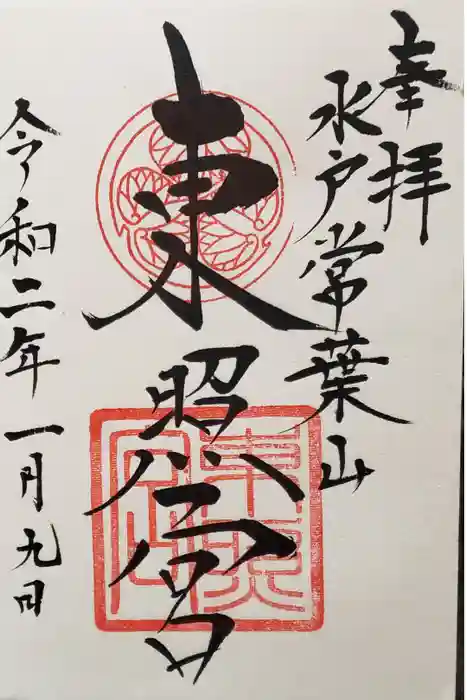 奉拝
水戸常葉山
東照宮
令和二年一月九日